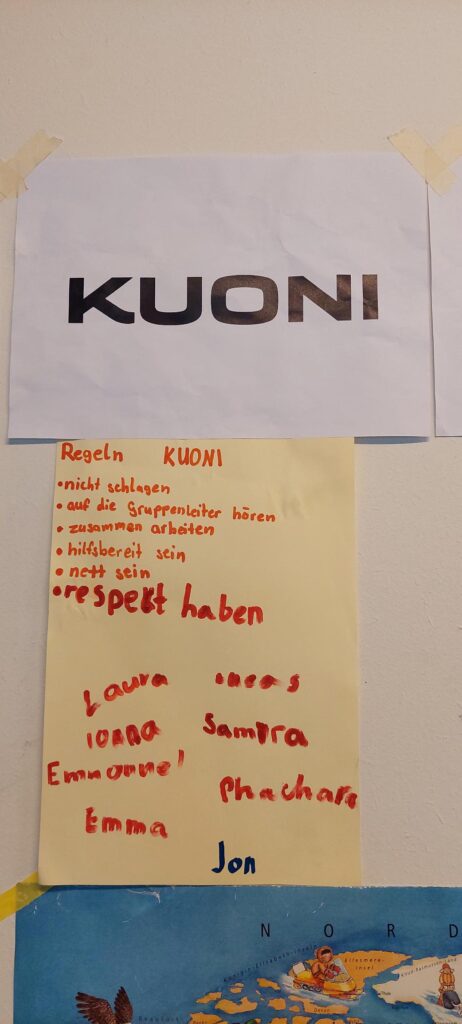 KUONI
Regeln KUONI
•nicht schlagen
•auf die Gruppenleiter hören
•zusammen arbeiten
•hilfsbereit sein
•nett sein
•respekt haben
Laura
Samira
Emma
Jon
NORD
Ellesmere-
insel